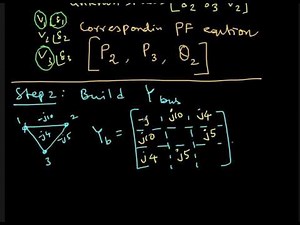 V₁ δ₁
V₂ δ₂ Correspondin PF equation
V₃ δ₃ [P₂, P₃, Q₂]
Step 2: Build Y bus
1 -j10 2
-j4 -j5
3
Y_b =
-j j10 j4
j10 j5
j4 j5